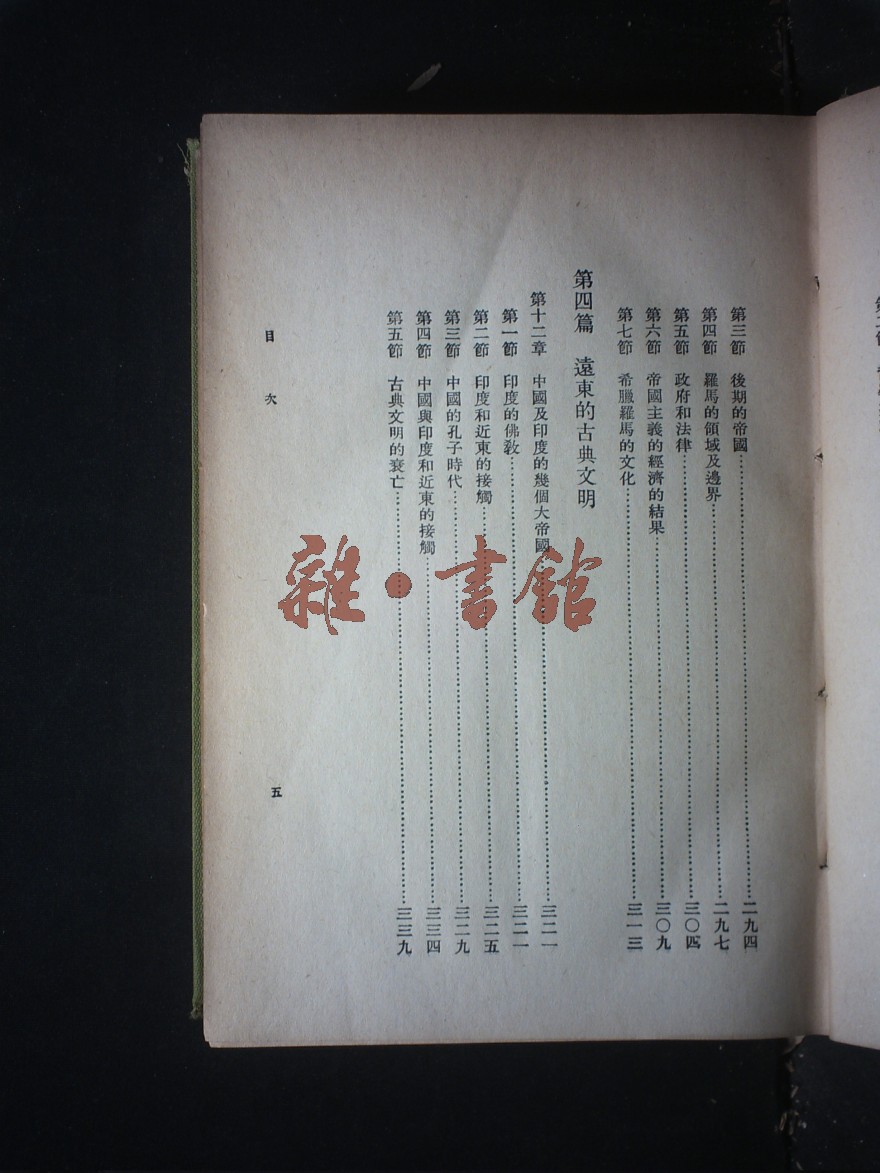 第三節 後期的帝國……二九四
第四節 羅馬的領域及邊界……二九七
第五節 政府和法律……三〇四
第六節 帝國主義的經濟的結果……三〇九
第七節 希臘羅馬的文化……三一三
第四篇 遠東的古典文明
第十二章 中國及印度的幾個大帝國……三二一
第一節 印度的佛教……三二一
第二節 印度和近東的接觸……三二五
第三節 中國的孔子時代……三二九
第四節 中國與印度和近東的接觸……三三四
第五節 古典文明的衰亡……三三九
目次
五
雜·書館